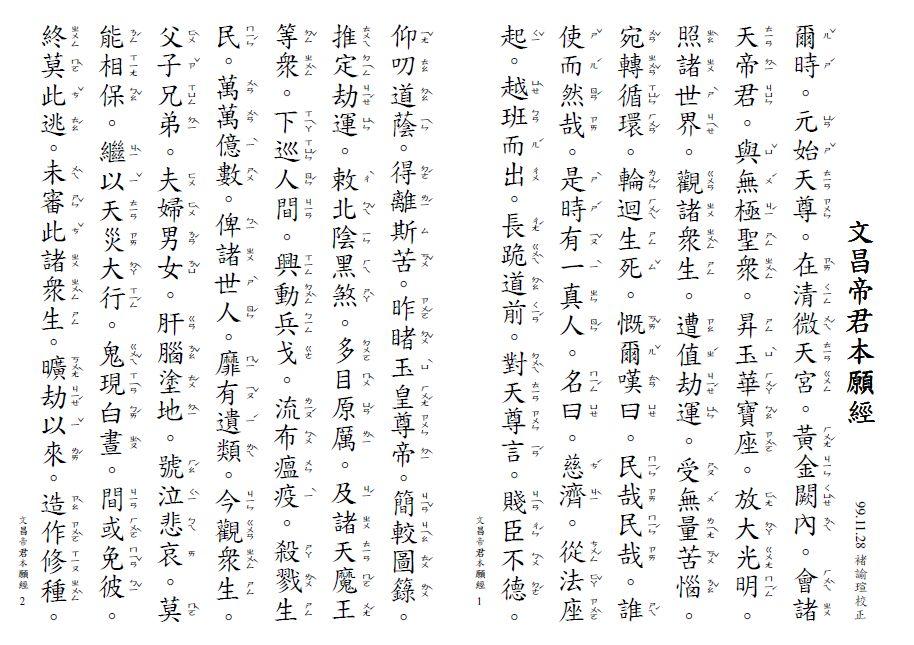 文昌帝君本願經
99.11.28 褚諭瑄校正
爾時。元始天尊。在清微天宮。黃金闕內。會諸
天帝君。與無極聖眾。昇玉華寶座。放大光明。
照諸世界。觀諸眾生。遭值劫運。受無量苦惱。
宛轉循環。輪迴生死。慨爾嘆曰。民哉民哉。誰
使而然哉。是時有一真人。名曰。慈濟。從法座
起。越班而出。長跪道前。對天尊言。賤臣不德。
文昌帝君本願經 1
仰叨道蔭。得離斯苦。昨睹玉皇尊帝。簡較圖籙。
推定劫運。敕北陰黑煞。多目原厲。及諸天魔王
等眾。下巡人間。興動兵戈。流布瘟疫。殺戮生
民。萬萬億數。俾諸世人。靡有遺類。今觀眾生。
父子兄弟。夫婦男女。肝腦塗地。號泣悲哀。莫
能相保。繼以天災大行。鬼現白晝。間或免彼。
終莫此逃。未審此諸眾生。曠劫以來。造作修種。
文昌帝君本願經 2